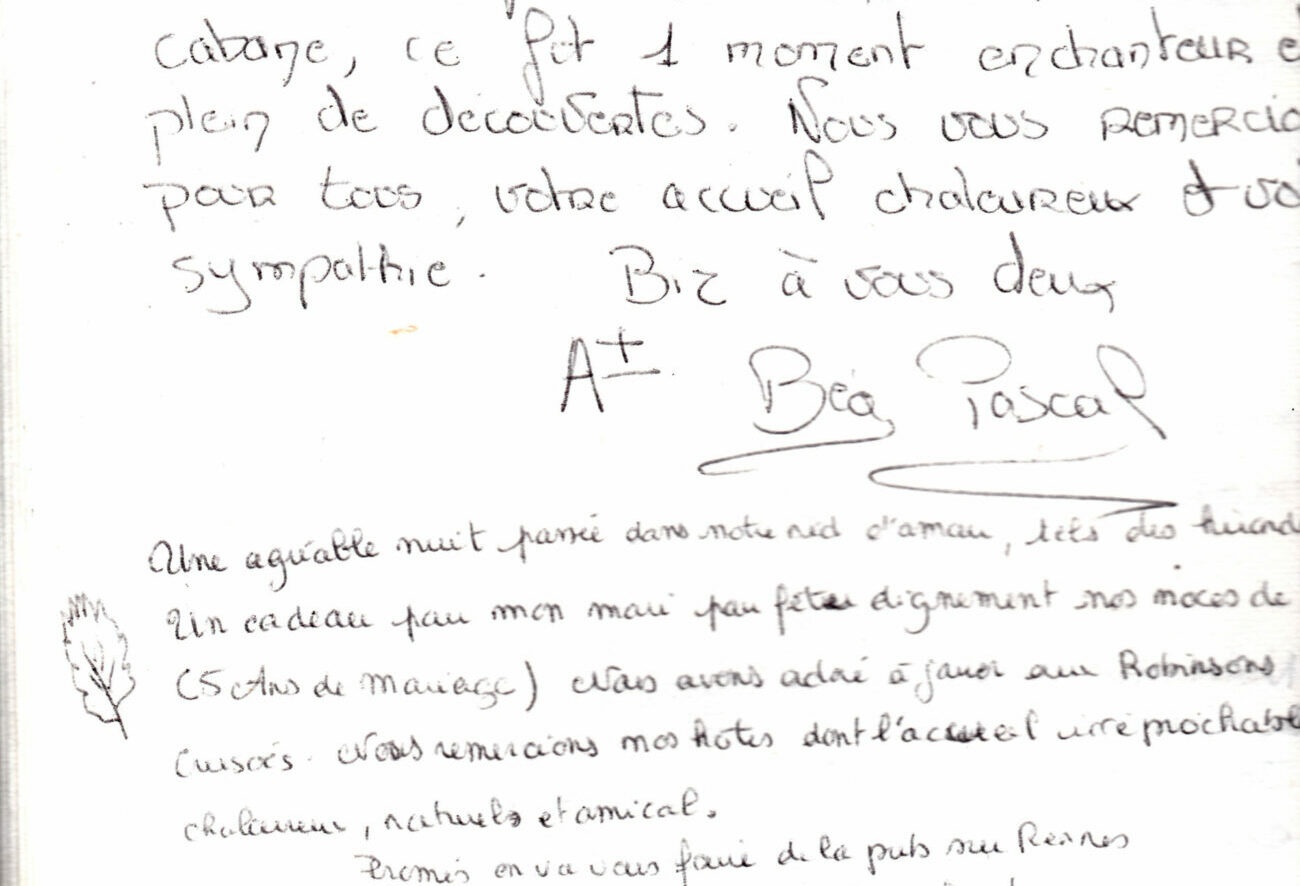 cabane, ce fut 1 moment enchanteur e
plein de découvertes. Nous vous remercio
pour tous, votre accueil chaleureux et vo
sympathie. Biz à vous deux
A+ Béa Pascal
Une agréable nuit passée dans notre nid d'amour, tels des
Un cadeau par mon mari pour fêter dignement nos noces de
(5 Ans de Mariage) Nous avons adoré à jouer aux Robinsons
Crusoés. Nous remercions nos hotes dont l'accueil irréprochable
chaleureux, naturels et amical.
Promis on va vous faire de la pub sur Rennes